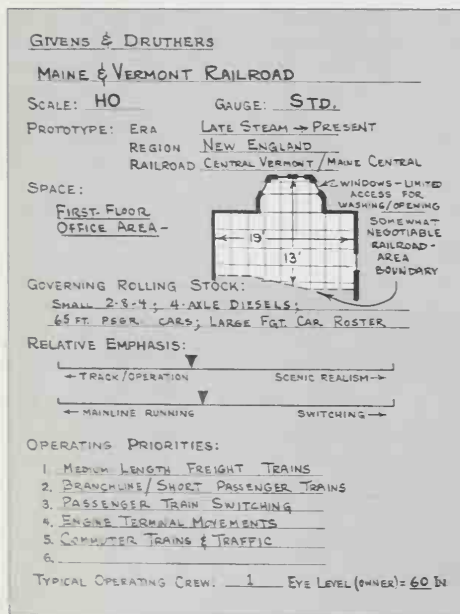 GIVENS & DRUTHERS
MAINE & VERMONT RAILROAD
SCALE: HO GAUGE: STD.
PROTOTYPE: ERA LATE STEAM → PRESENT
REGION NEW ENGLAND
RAILROAD CENTRAL VERMONT/MAINE CENTRAL
SPACE:
FIRST-FLOOR
OFFICE AREA-
WINDOWS-LIMITED
ACCESS FOR
WASHING/OPENING
SOMEWHAT
NEGOTIABLE
RAILROAD-
AREA
BOUNDARY
19'
13'
GOVERNING ROLLING STOCK:
SMALL 2-8-4; 4-AXLE DIESELS;
65 FT. PSGR. CARS; LARGE FGT. CAR ROSTER
RELATIVE EMPHASIS:
←TRACK/OPERATION SCENIC REALISM→
←MAINLINE RUNNING SWITCHING→
OPERATING PRIORITIES:
1. MEDIUM LENGTH FREIGHT TRAINS
2. BRANCHLINE/SHORT PASSENGER TRAINS
3. PASSENGER TRAIN SWITCHING
4. ENGINE TERMINAL MOVEMENTS
5. COMMUTER TRAINS & TRAFFIC
6.
TYPICAL OPERATING CREW: 1 EYE LEVEL (OWNER)= 60 IN